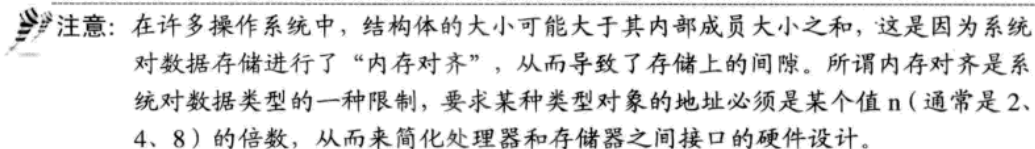 注意：在许多操作系统中，结构体的大小可能大于其内部成员大小之和，这是因为系统
对数据存储进行了“内存对齐”，从而导致了存储上的间隙。所谓内存对齐是系
统对数据类型的一种限制，要求某种类型对象的地址必须是某个值 n（通常是 2、
4、8）的倍数，从而来简化处理器和存储器之间接口的硬件设计。